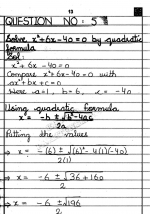 13
QUESTION NO : 5
Solve x²+6x-40=0 by quadratic
formula
Sol:
x² + 6x - 40 = 0
Compare x²+6x-40=0 with
ax²+bx+c=0
Here a=1, b=6, c = -40
Using quadratic formula
x = -b ± √b²-4ac
2a
Putting the values
⇒ x = -(6) ± √(6)²-4(1)(-40)
2(1)
⇒ x = -6 ± √36+160
2
⇒ x = -6 ± √196
2